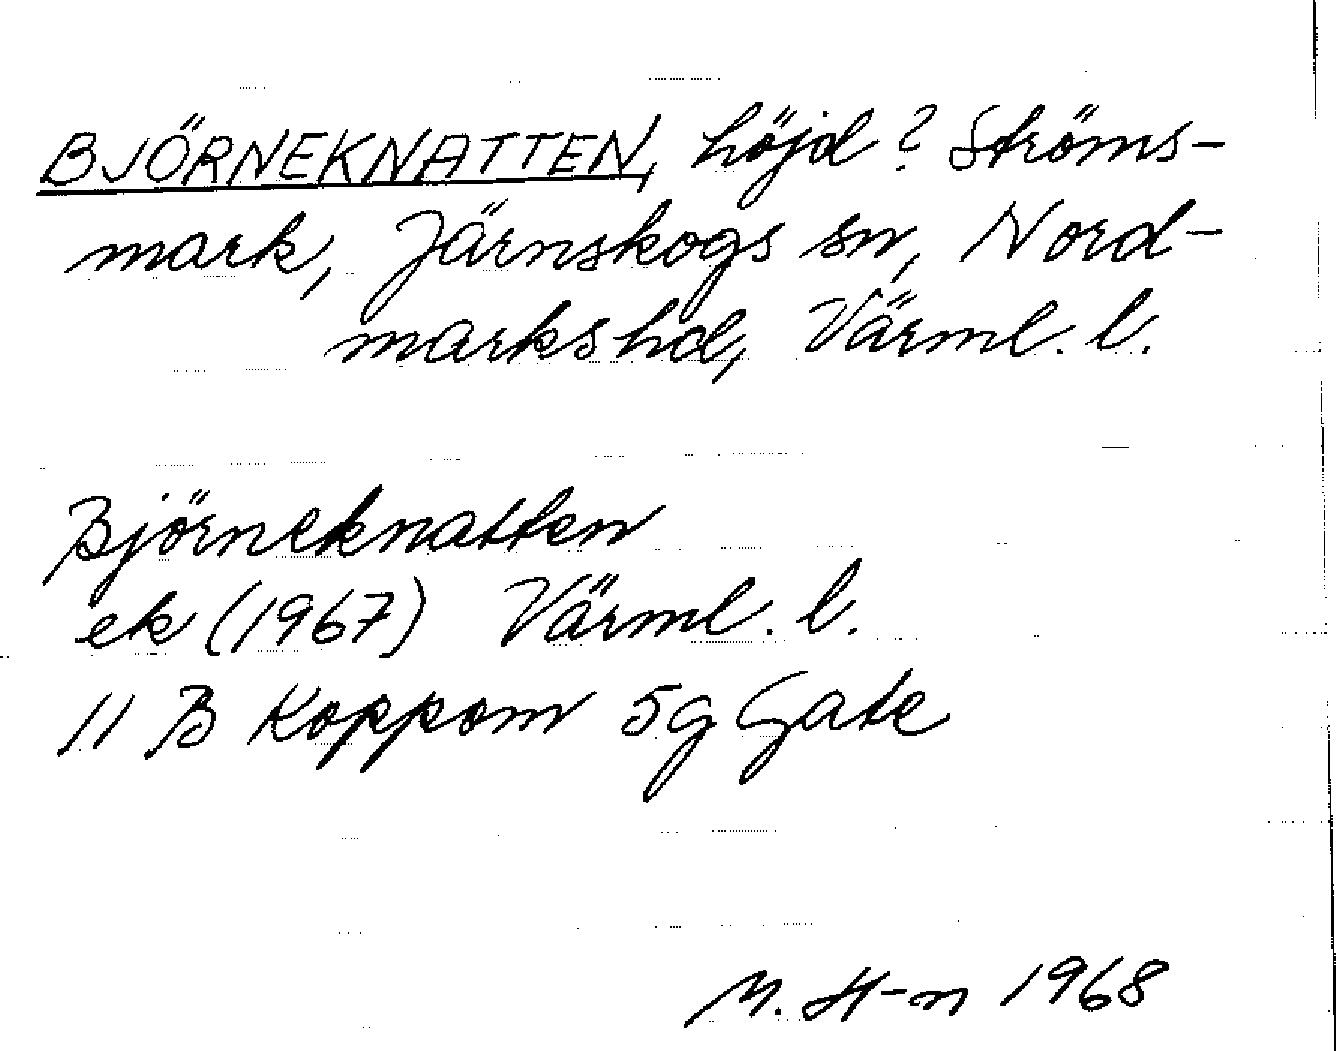 BJÖRNEKNATTEN, höjd? Ströms-
mark, Järnskogs sn, Nord-
marks hd, Värml. l.
Björneknatten
ek (1967) Värml. l.
11 B Koppom 5g Gate
M. H-n 1968